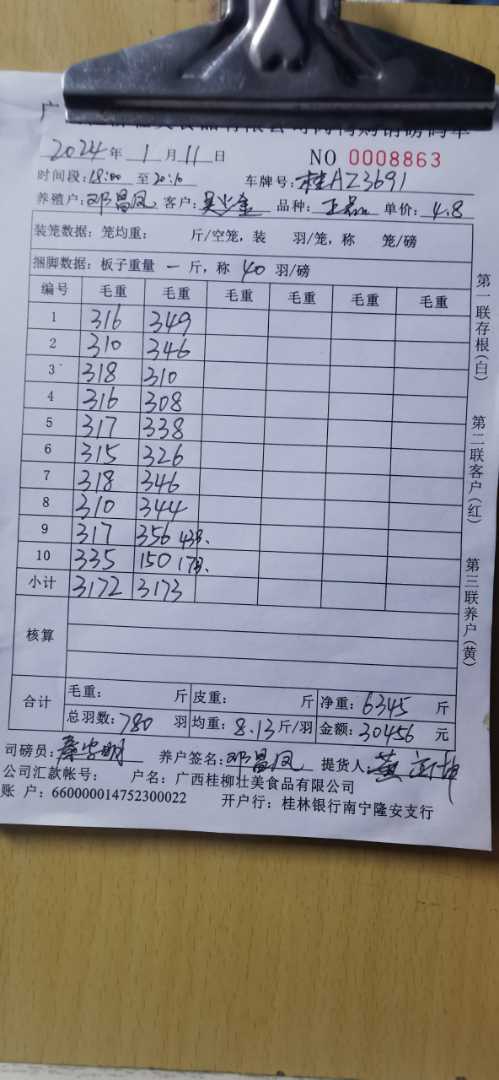 2024年 1月 11日 NO 0008863
时间段:18:00 至 20:10 车牌号:桂AZ3691
养殖户:邓昌凤 客户:吴少金 品种:正品 单价:4.8
装笼数据:笼均重: 斤/空笼,装 羽/笼,称 笼/磅
捆脚数据:板子重量 一 斤,称 40 羽/磅
编号 毛重 毛重 毛重 毛重 毛重 毛重
1 316 349
2 310 346
3 318 310
4 316 308
5 317 338
6 315 326
7 318 346
8 310 344
9 317 356 43只.
10 335 150 17只.
小计 3172 3173
核算
合计 毛重: 斤 皮重: 斤 净重:6345 斤
总羽数:780 羽 均重:8.13斤/羽 金额:30456 元
司磅员: 养户签名:邓昌凤 提货人:黄
公司汇款帐号: 户名:广西桂柳壮美食品有限公司
账 户:660000014752300022 开户行:桂林银行南宁隆安支行
第一联存根(白) 第二联客户(红) 第三联养户(黄)